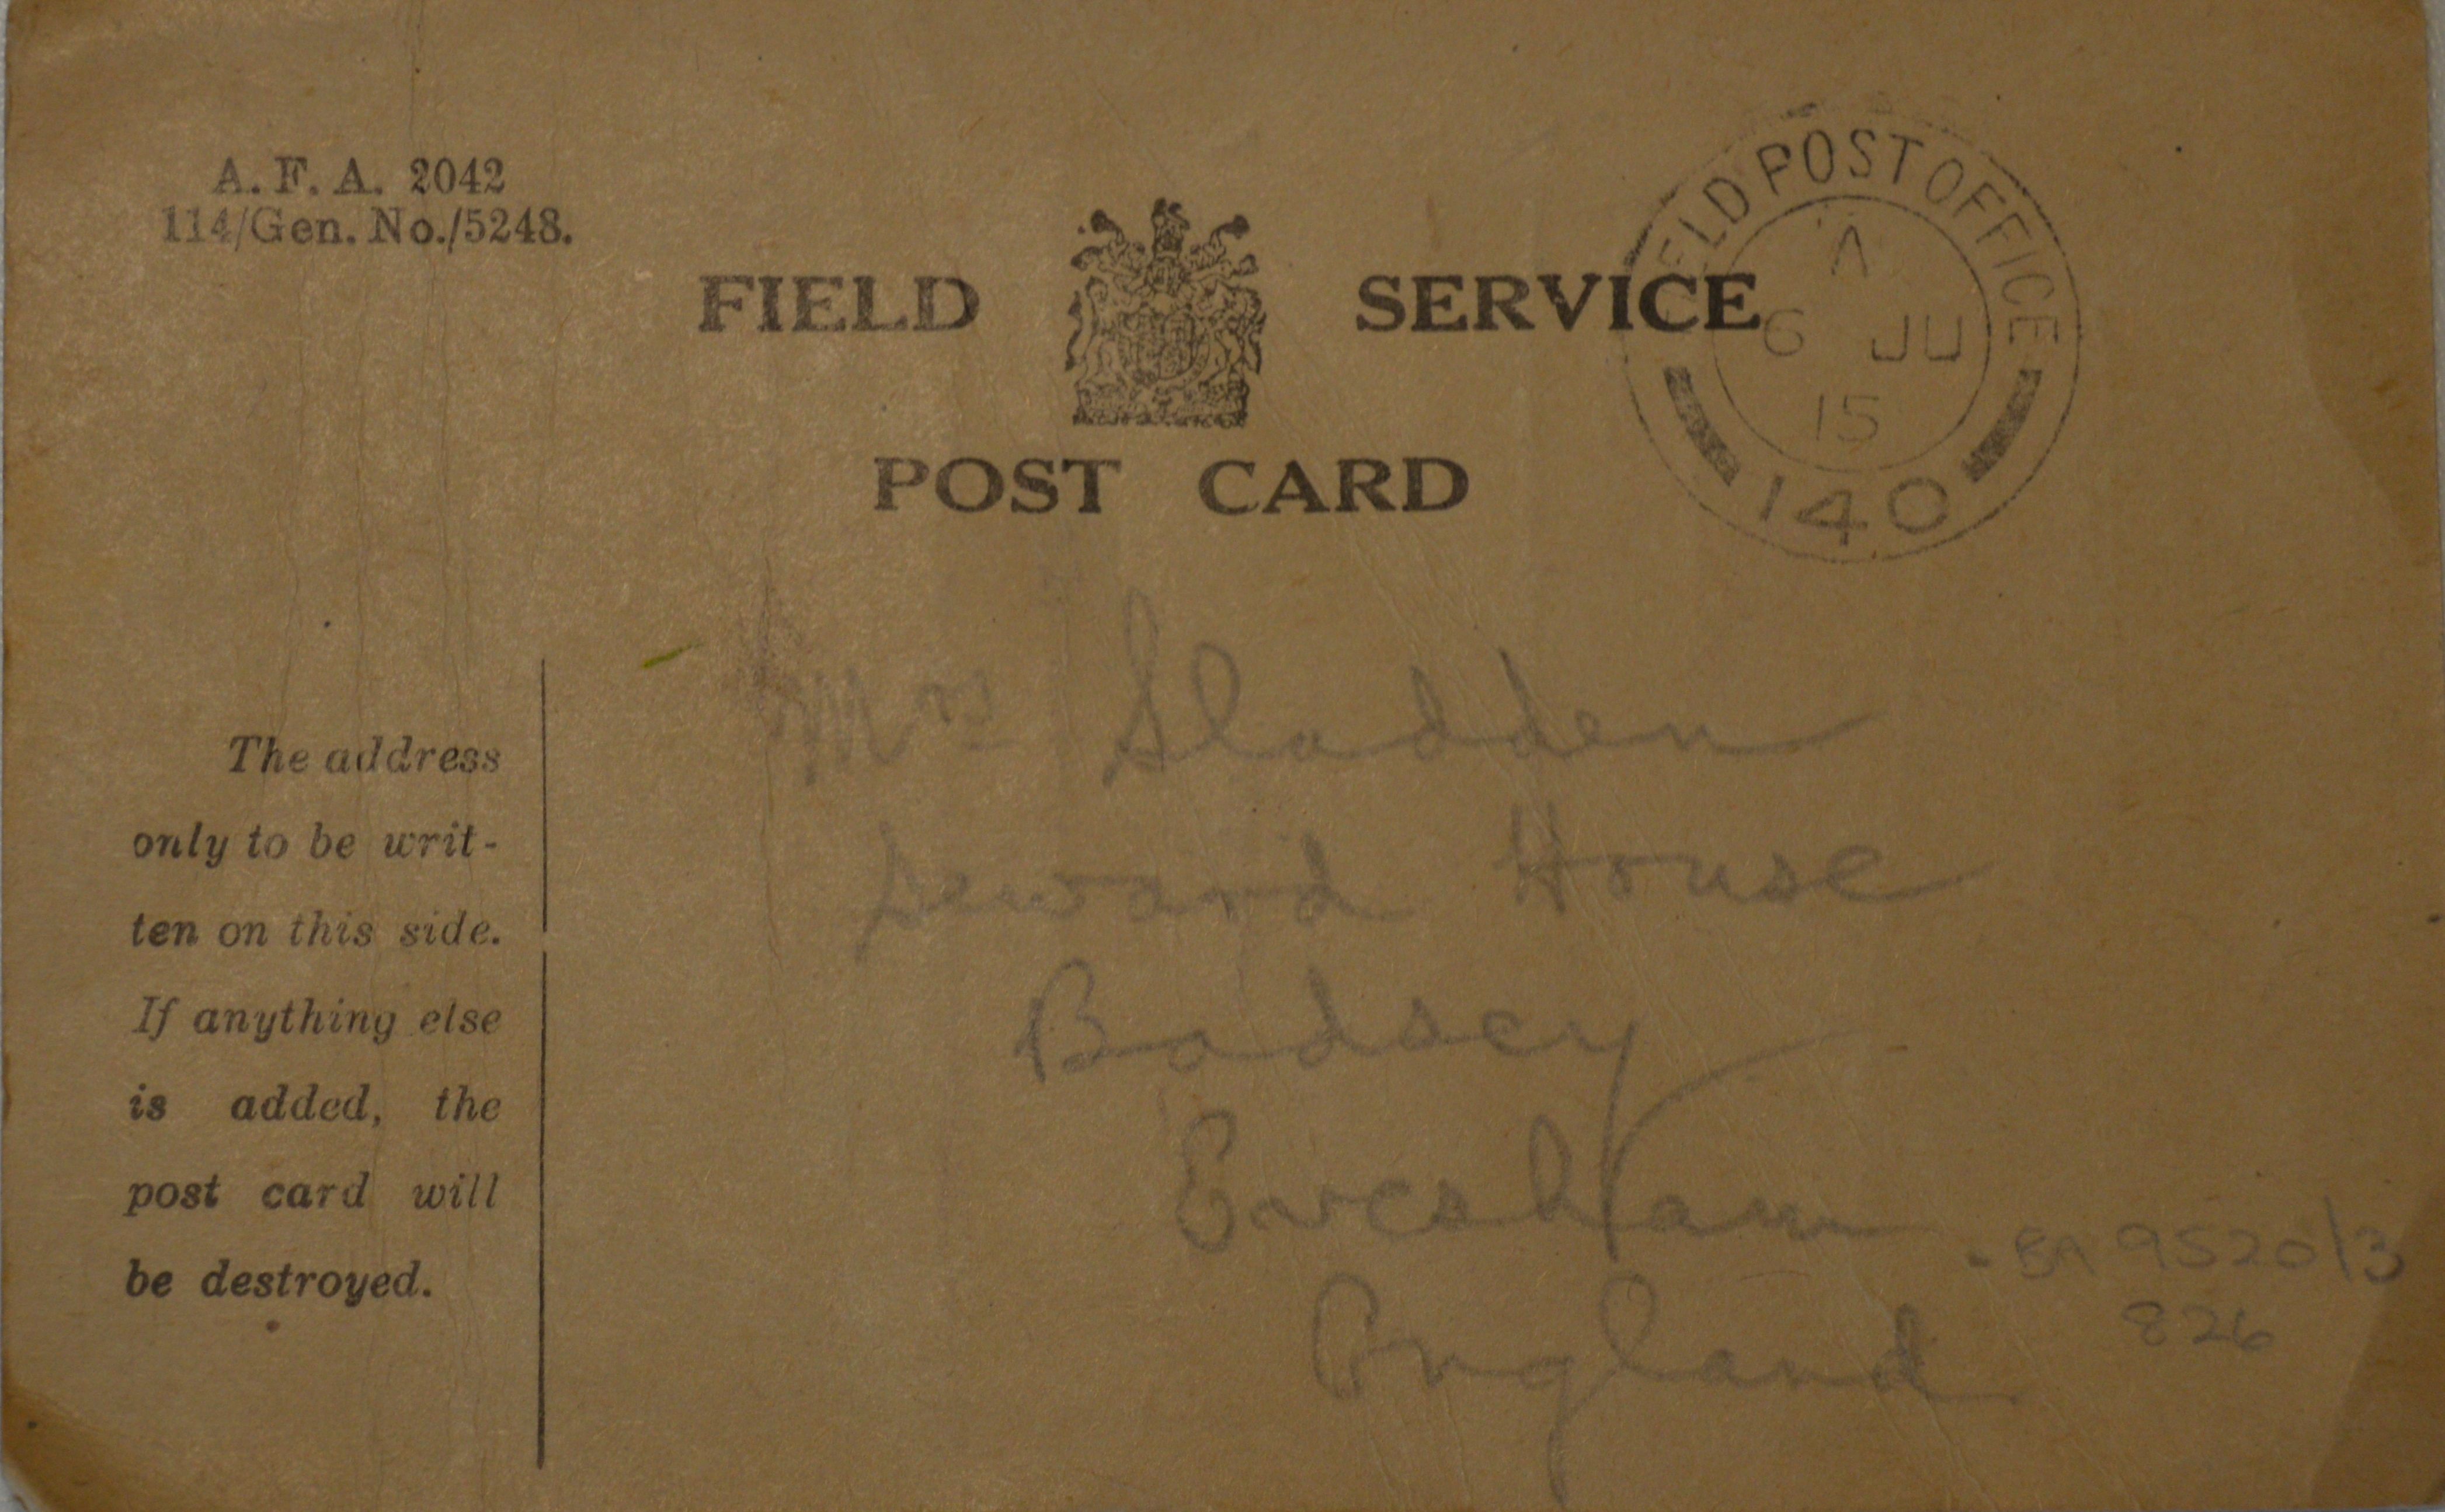 A. F. A. 2042
114/Gen. No./5248.
FIELD SERVICE
POST CARD
FIELD POST OFFICE
A
6 JU
15
140
The address
only to be writ-
ten on this side.
If anything else
is added, the
post card will
be destroyed.
Mrs Sladden
Seward House
Badsey
Evesham
England
BA 9520/3
826